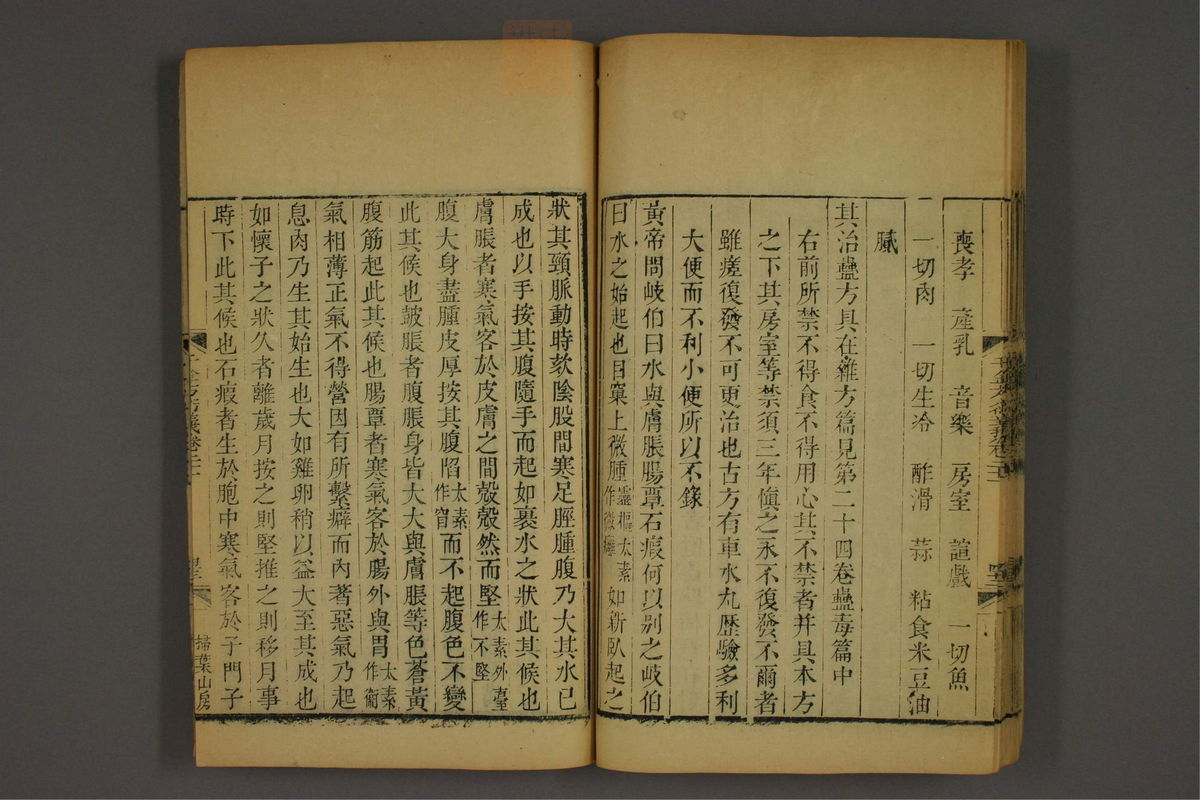 喪孝　產乳　音樂　房室　諠戲　一切魚
一切肉　一切生冷　酢滑　蒜　粘食米豆油
膩
其治蠱方具在雜方篇見第二十四卷蠱毒篇中
右前所禁不得食不得用心其不禁者并具本方
之下其房室等禁須三年慎之永不復發不爾者
雖瘥復發不可更治也古方有車水丸歷驗多利
大便而不利小便所以不錄
黃帝問岐伯曰水與膚脹腸覃石瘕何以别之岐伯
曰水之始起也目窠上微腫靈樞太素作微癰如新臥起之
狀其頸脈動時欬陰股間寒足脛腫腹乃大其水已
成也以手按其腹隨手而起如裹水之狀此其候也
膚脹者寒氣客於皮膚之間殼殼然而堅太素外臺作不堅
腹大身盡腫皮厚按其腹陷太素作窅而不起腹色不變
此其候也皷脹者腹脹身皆大大與膚脹等色蒼黃
腹筋起此其候也腸覃者寒氣客於腸外與胃太素作衛
氣相薄正氣不得營因有所繫癖而內著惡氣乃起
息肉乃生其始生也大如雞卵稍以益大至其成也
如懷子之狀久者離歲月按之則堅推之則移月事
時下此其候也石瘕者生於胞中寒氣客於子門子
掃葉山房